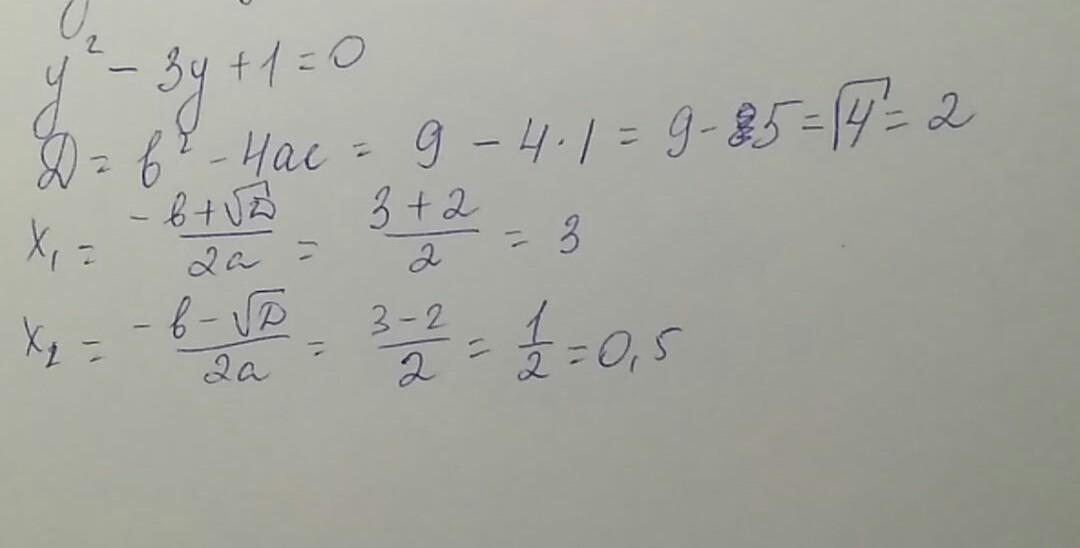 y² - 3y + 1 = 0
Д = b² - 4ac = 9 - 4·1 = 9 - 5 = √4 = 2
x₁ = (-b + √D)/(2a) = (3 + 2)/2 = 3
x₂ = (-b - √D)/(2a) = (3 - 2)/2 = 1/2 = 0,5